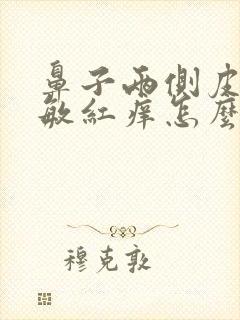 鼻子兩側皮
敏紅癢怎麼
穆克敦